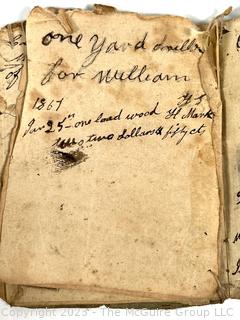 one Yard
for william
1861
Jan 25th one load wood
two dollars & fifty ct
Copyright 2023 - The McGuire Group LLC